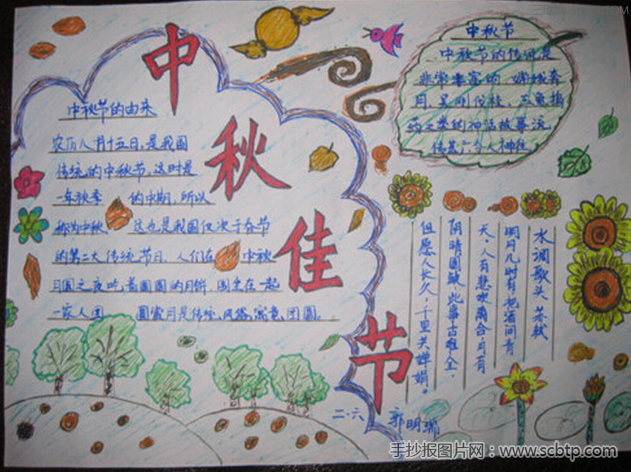 中秋佳节
中秋节的由来
农历八月十五日,是我国
传统的中秋节,这时是
一年秋季 的中期,所以
称为中秋 这也是我国仅次于春节
的第二大传统节日,人们在 中秋
月圆之夜吃着圆圆的月饼,围坐在一起
一家人团 圆赏月是传统,风俗,寓意,团圆
中秋节
中秋节的传说是
非常丰富的,嫦娥奔
月,吴刚伐桂,玉兔捣
药之类的神话故事流
传甚广
水调歌头 苏轼
明月几时有,把酒问青
天,人有悲欢离合,月有
阴晴圆缺,此事古难全,
但愿人长久,千里共婵娟。
二.六 郭明
手抄报图片网:www.scbtp.com